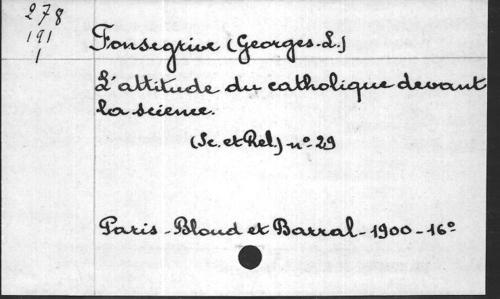 278
191
1
Fonsegrive (Georges-L.)
L'attitude du catholique devant
la science.
(Sc. et Rel.) nº 29
Paris - Bloud et Barral - 1900 - 16º